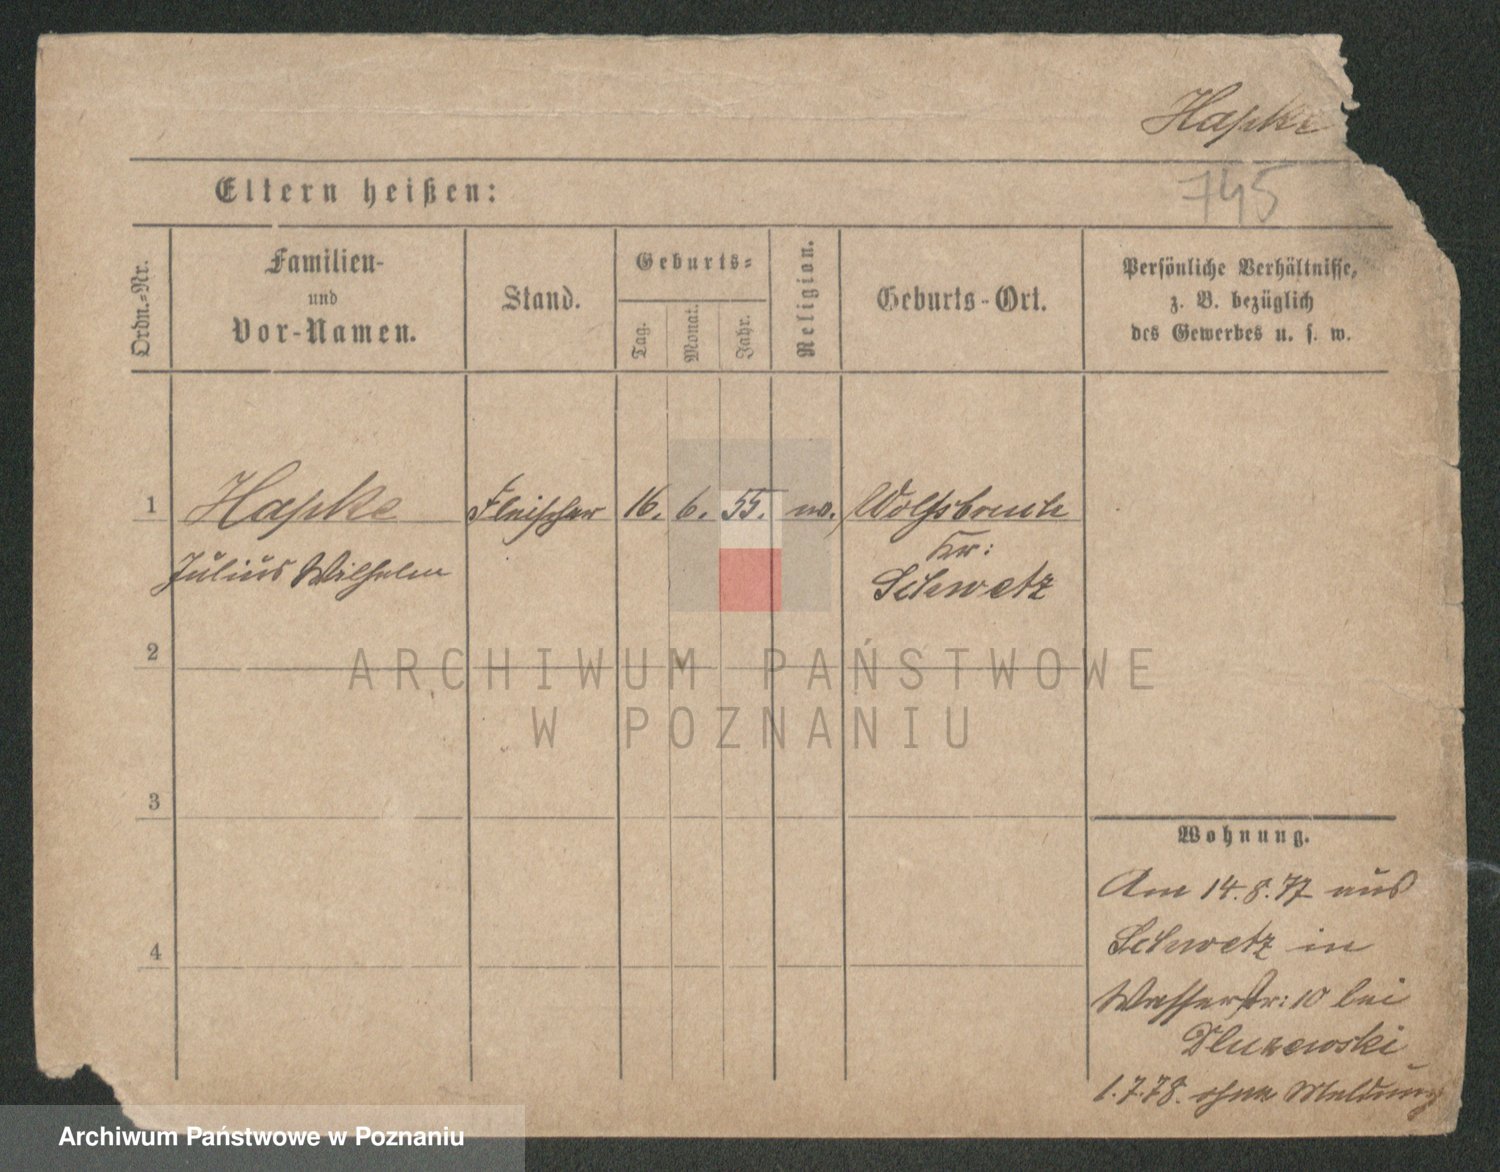 Hapke
745
Eltern heißen:
Ordn.-Nr.
Familien-
und
Vor-Namen.
Stand.
Geburts-
Tag.
Monat.
Jahr.
Religion.
Geburts-Ort.
Persönliche Verhältnisse,
z. B. bezüglich
des Gewerbes u. s. w.
1 Hapke Fleischer 16. 6. 55. Wolfsbruch
Kr:
Julius Wilhelm Schwetz
2
3
4
Wohnung.
Am 14.8.77 aus
Schwetz in
Wasserstr: 10 bei
Dluzewski
1.7.78. ohne Meldung
ARCHIWUM PAŃSTWOWE
W POZNANIU
Archiwum Państwowe w Poznaniu